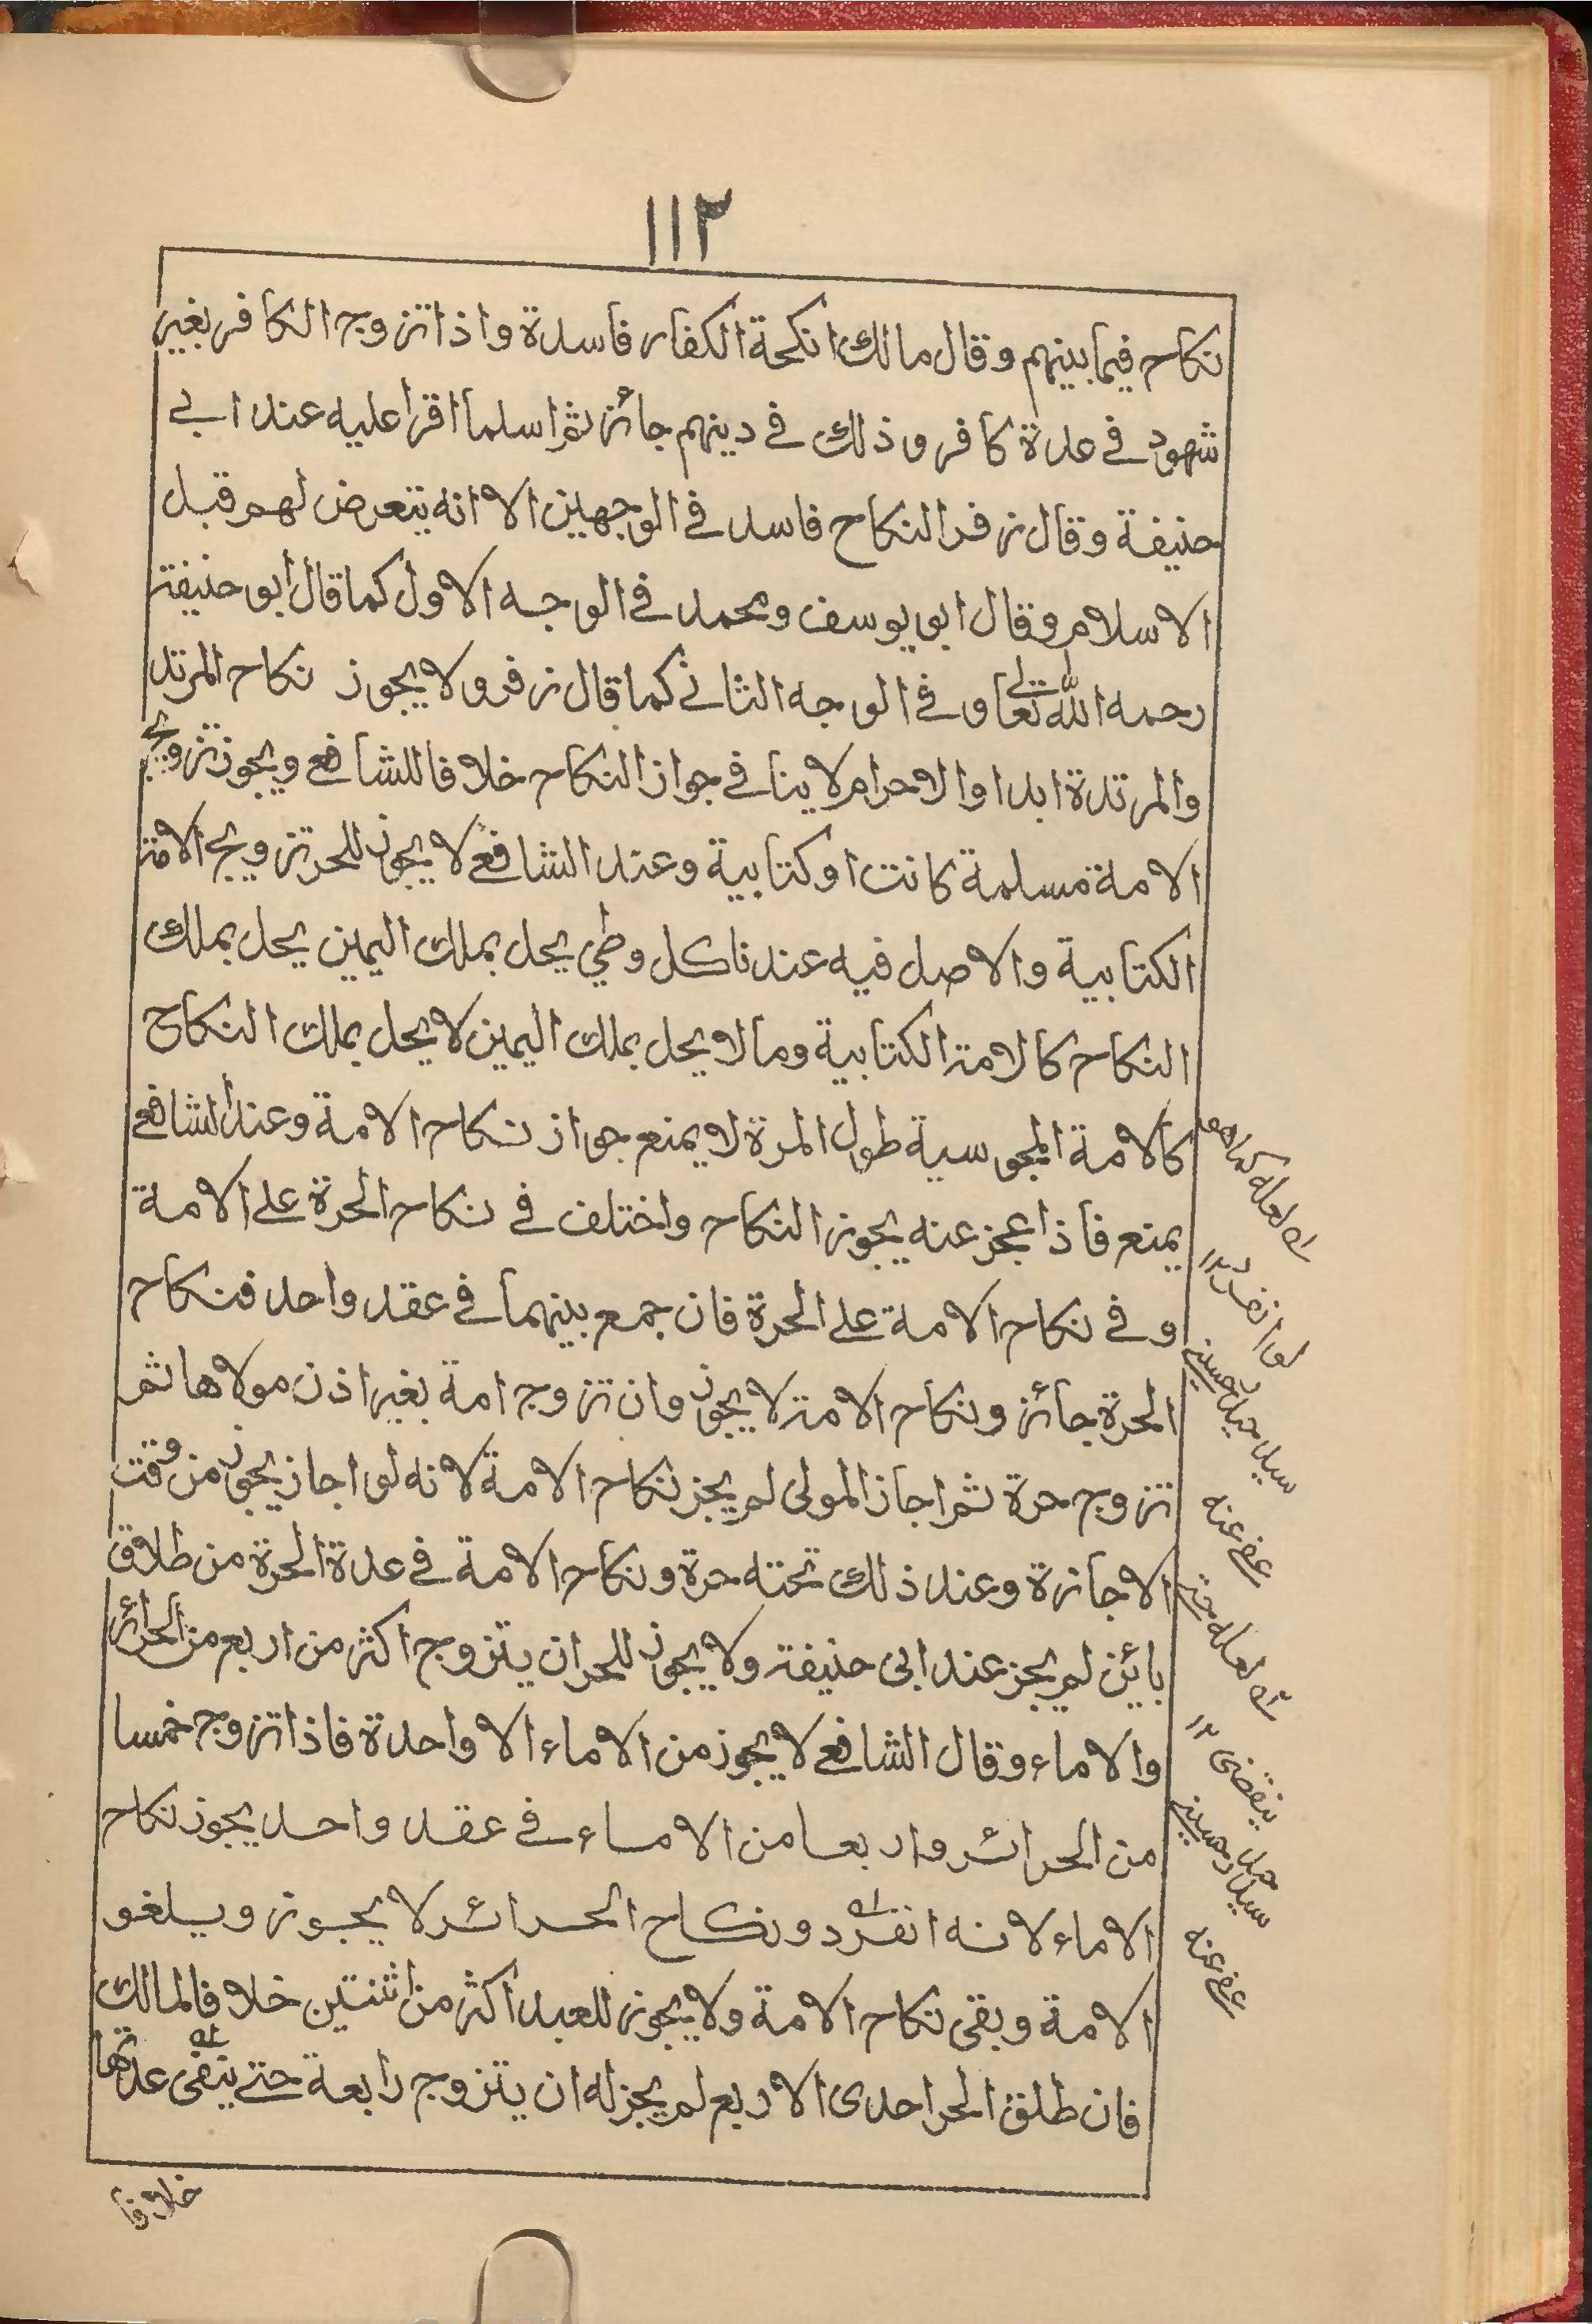 ١١٢
نكاح فيما بينهم وقال مالك انكحة الكفار فاسدة واذا تزوج الكافر بغير
شهود في عدة كافر وذلك في دينهم جائز ثم اسلما اقرا عليه عند ابي
حنيفة وقال زفر النكاح فاسد في الوجهين الا انه يتعرض لهم قبل
الاسلام وقال ابو يوسف ومحمد في الوجه الاول كما قال ابو حنيفة
رحمه الله تعالى وفي الوجه الثاني كما قال زفر ولا يجوز نكاح المرتد
والمرتدة ابدا والاحرام لا ينافي جواز النكاح خلافا للشافعي ويجوز تزويج
الامة مسلمة كانت او كتابية وعند الشافعي لا يجوز للحر تزويج الامة
الكتابية والاصل فيه عندنا كل وطي يحل بملك اليمين يحل بملك
النكاح كالامة الكتابية وما لا يحل بملك اليمين لا يحل بملك النكاح
كالامة المجوسية طول المرة لا يمنع جواز نكاح الامة وعند الشافعي
يمنع فاذا عجز عنه يجوز النكاح واختلف في نكاح الحرة على الامة
وفي نكاح الامة على الحرة فان جمع بينهما في عقد واحد فنكاح
الحرة جائز ونكاح الامة لا يجوز وان تزوج امة بغير اذن مولاها ثم
تزوج حرة ثم اجاز المولى لم يجز نكاح الامة لانه لو اجاز يجوز من وقت
الاجازة وعند ذلك تحته حرة ونكاح الامة في عدة الحرة من طلاق
بائن لم يجز عند ابى حنيفة ولا يجوز للحر ان يتزوج اكثر من اربع من الحرائر
والاماء وقال الشافعي لا يجوز من الاماء الا واحدة فاذا تزوج خمسا
من الحرائر واربعا من الاماء في عقد واحد يجوز نكاح
الاماء لانه انفرد ونكاح الحرائر لا يجوز ويلغو
الامة وبقى نكاح الامة ولا يجوز للعبد اكثر من اثنتين خلافا لمالك
فان طلق الحر احدى الاربع لم يجز له ان يتزوج رابعة حتى يتقى عدتها
خلافا
له لعله كماهو
لو انفرد ١٢
سيد حسيني
عفي عنه
له لعله حتى
ينقضى ١٢
سيد حسيني
عفي عنه